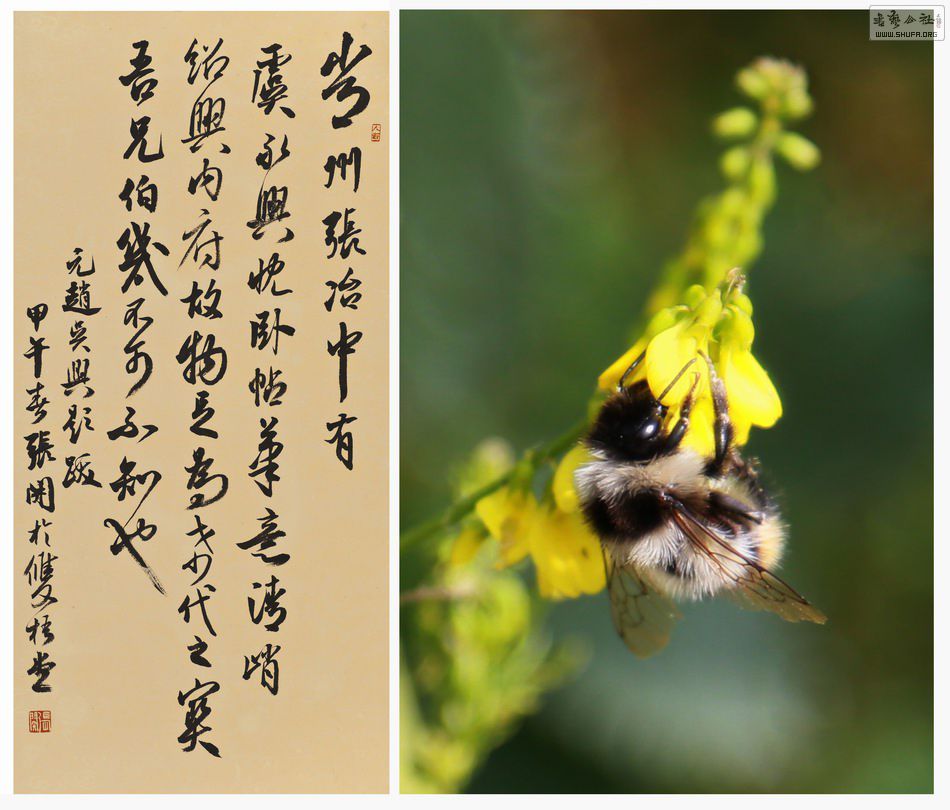 常州張治中有
虞永興枕臥帖筆意清峭
紹興內府故物足為希代之寶
吾兄伯幾不可不知也
元趙吳興題跋
甲午春張於雙梧堂
書藝公社
WWW.SHUFA.ORG